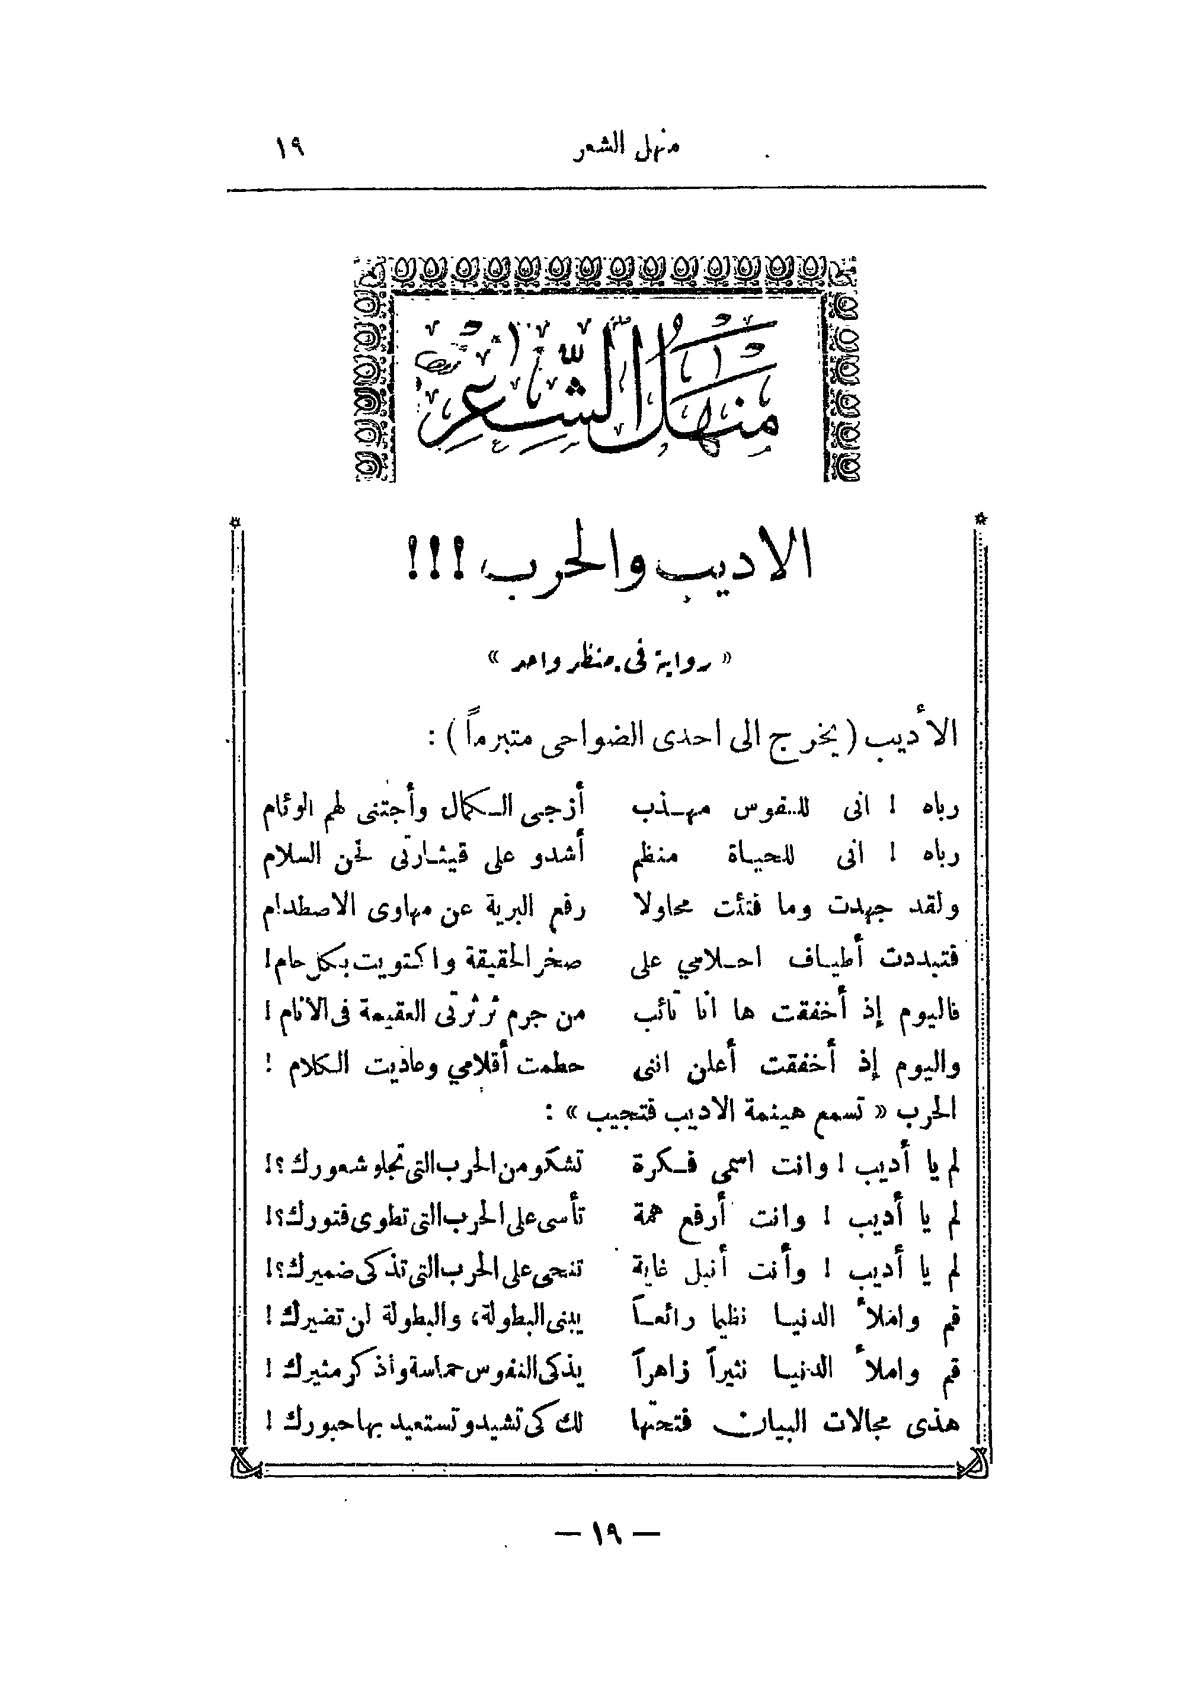 منهل الشعر ١٩
منهل الشعر
الاديب والحرب !!!
« رواية فى منظر واحد »
الأديب ( يخرج الى احدى الضواحى متبرماً ) :
رباه ! انى للنفوس مهـذب أزجى الـكمال وأجتنى لهم الوئام
رباه ! انى للحياة منظم أشدو على قيثـارتى لحن السلام
ولقد جهدت وما فتئت محاولا رفع البرية عن مهاوى الاصطدام
فتبددت أطيـاف احـلامي على صخر الحقيقة واكتويت بكل حام!
فاليوم إذ أخفقت ها انا تائب من جرم ثرثرتى العقيمة فى الانام !
واليوم إذ أخفقت أعلن اننى حطمت أقلامي وعاديت الكلام !
الحرب « تسمع هينمة الاديب فتجيب » :
لم يا أديب ! وانت اسمى فـكرة تشكو من الحرب التى تجلو شعورك ؟!
لم يا أديب ! وانت أرفع همة تأسى على الحرب التى تطوى فتورك؟!
لم يا أديب ! وأنت أنبل غاية تنحى على الحرب التى تذكى ضميرك؟!
قم واملأ الدنيـا نظيما رائعـاً يبنى البطولة، والبطولة لن تضيرك !
قم واملأ الدنيـا نثيراً زاهراً يذكى النفوس حماسة واذكر مثيرك !
هذى مجالات البيان فتحتها لك كى تشيد وتستعيد بها حبورك !
— ١٩ —